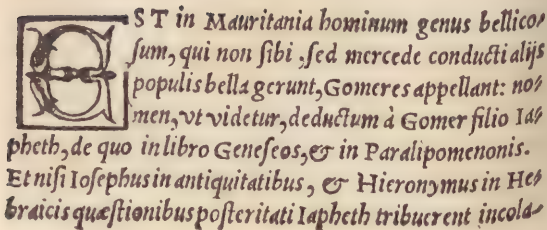 EST in Mauritania hominum genus bellico-
ſum, qui non ſibi, ſed mercede conducti alijs
populis bella gerunt, Gomeres appellant: no-
men, vt videtur, deductum à Gomer filio Ia-
pheth, de quo in libro Geneſeos, & in Paralipomenonis.
Et niſi Ioſephus in antiquitatibus, & Hieronymus in He-
braicis quæſtionibus poſteritati Iapheth tribuerent incola-